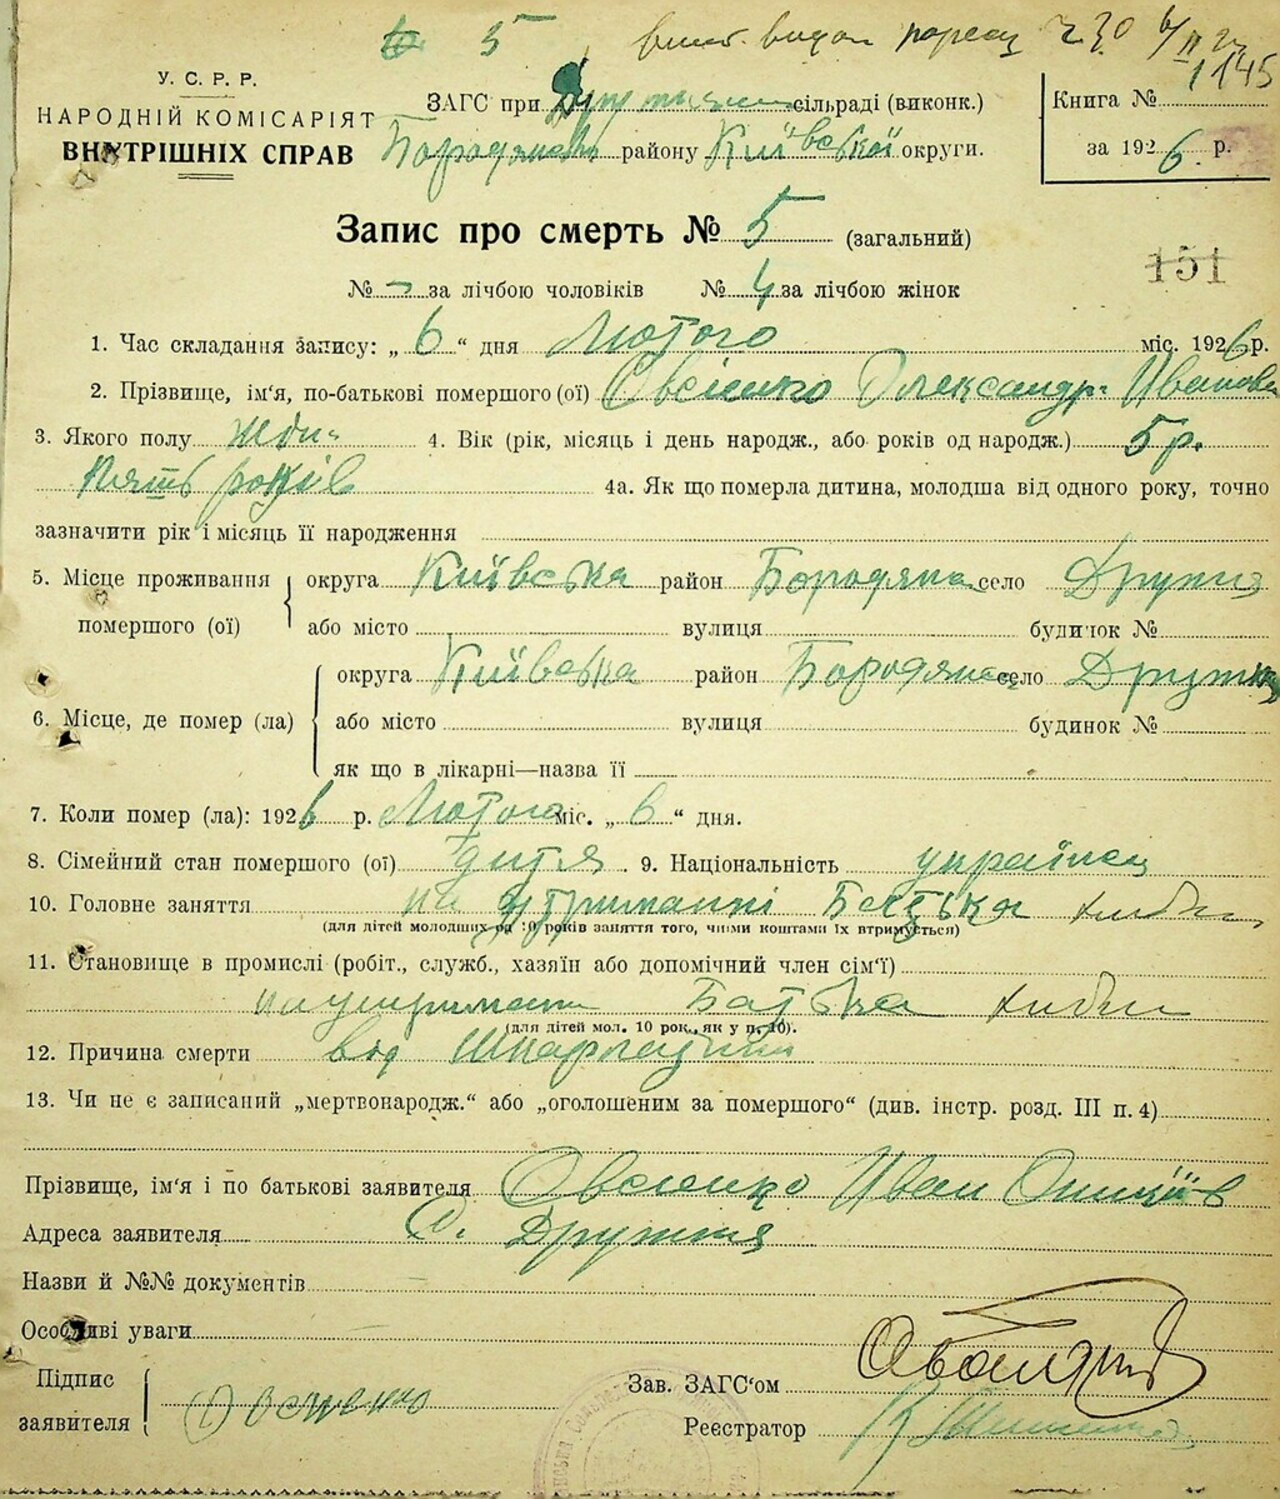 5
У. С. Р. Р.
НАРОДНІЙ КОМІСАРІЯТ
ВНУТРІШНІХ СПРАВ
ЗАГС при сільраді (виконк.)
Бородянськ району Київської округи.
Книга № 1145
за 1926 р.
Запис про смерть № 5 (загальний)
151
№ – за лічбою чоловіків № 4 за лічбою жінок
1. Час складання запису: „ 6 “ дня Лютого міс. 1926 р.
2. Прізвище, ім'я, по-батькові помершого (ої) Овсієнко Олександр. Иванов
3. Якого полу 4. Вік (рік, місяць і день народж., або років од народж.) 5 р.
Пять років 4а. Як що померла дитина, молодша від одного року, точно
зазначити рік і місяць її народження
5. Місце проживання помершого (ої) округа Київська район Бородянка село Дружня
або місто вулиця будинок №
6. Місце, де помер (ла) округа Київська район Бородянка село Дружня
або місто вулиця будинок №
як що в лікарні—назва її
7. Коли помер (ла): 1926 р. Лютого міс. „ 6 “ дня.
8. Сімейний стан помершого (ої) дитя . 9. Національність українец
10. Головне заняття на утриманні Батька
(для дітей молодших од 10 років заняття того, чиїми коштами їх втримується)
11. Становище в промислі (робіт., служб., хазяїн або допомічний член сім'ї)
на утриман Батька
(для дітей мол. 10 рок., як у п. 10).
12. Причина смерти від Шкарлатини
13. Чи не є записаний „мертвонародж.“ або „оголошеним за помершого“ (див. інстр. розд. III п. 4)
Прізвище, ім'я і по батькові заявителя Овсієнко Иван
Адреса заявителя С. Дружня
Назви й №№ документів –
Особливі уваги –
Підпис заявителя
Зав. ЗАГС'ом
Реєстратор